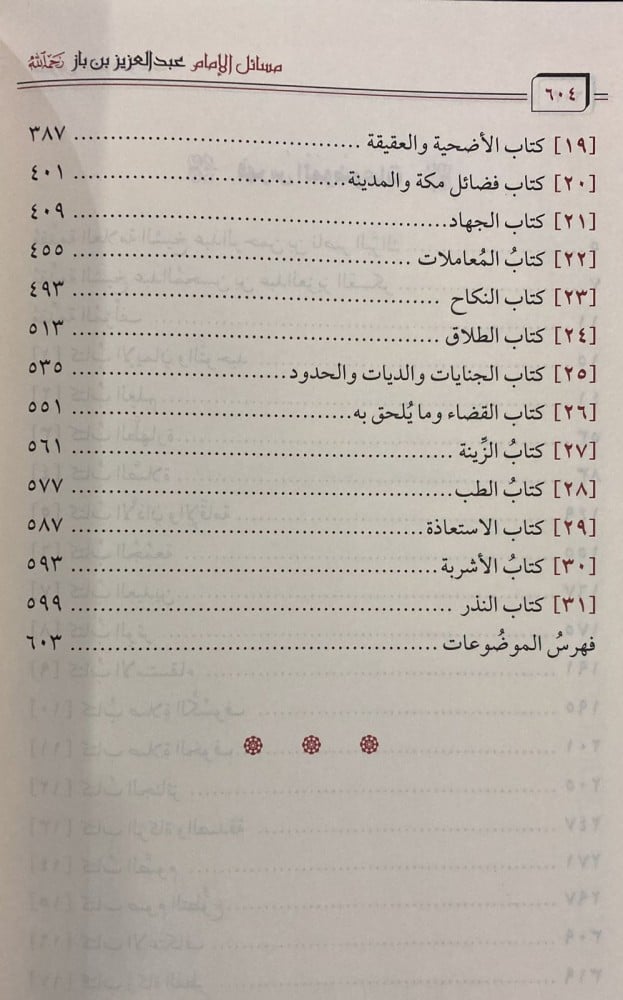 مسائل الإمام عبدالعزيز بن باز رَحِمَهُ اللَّهُ
٦٠٤
[١٩] كتاب الأضحية والعقيقة ........................................ ٣٨٧
[٢٠] كتاب فضائل مكة والمدينة ........................................ ٤٠١
[٢١] كتاب الجهاد ........................................ ٤٠٩
[٢٢] كتابُ المُعاملات ........................................ ٤٥٥
[٢٣] كتاب النكاح ........................................ ٤٩٣
[٢٤] كتاب الطلاق ........................................ ٥١٣
[٢٥] كتاب الجنايات والديات والحدود ........................................ ٥٣٥
[٢٦] كتاب القضاء وما يُلحق به ........................................ ٥٥١
[٢٧] كتابُ الزِّينة ........................................ ٥٦١
[٢٨] كتابُ الطب ........................................ ٥٧٧
[٢٩] كتاب الاستعاذة ........................................ ٥٨٧
[٣٠] كتابُ الأشربة ........................................ ٥٩٣
[٣١] كتاب النذر ........................................ ٥٩٩
فهرسُ الموضُوعات ........................................ ٦٠٣